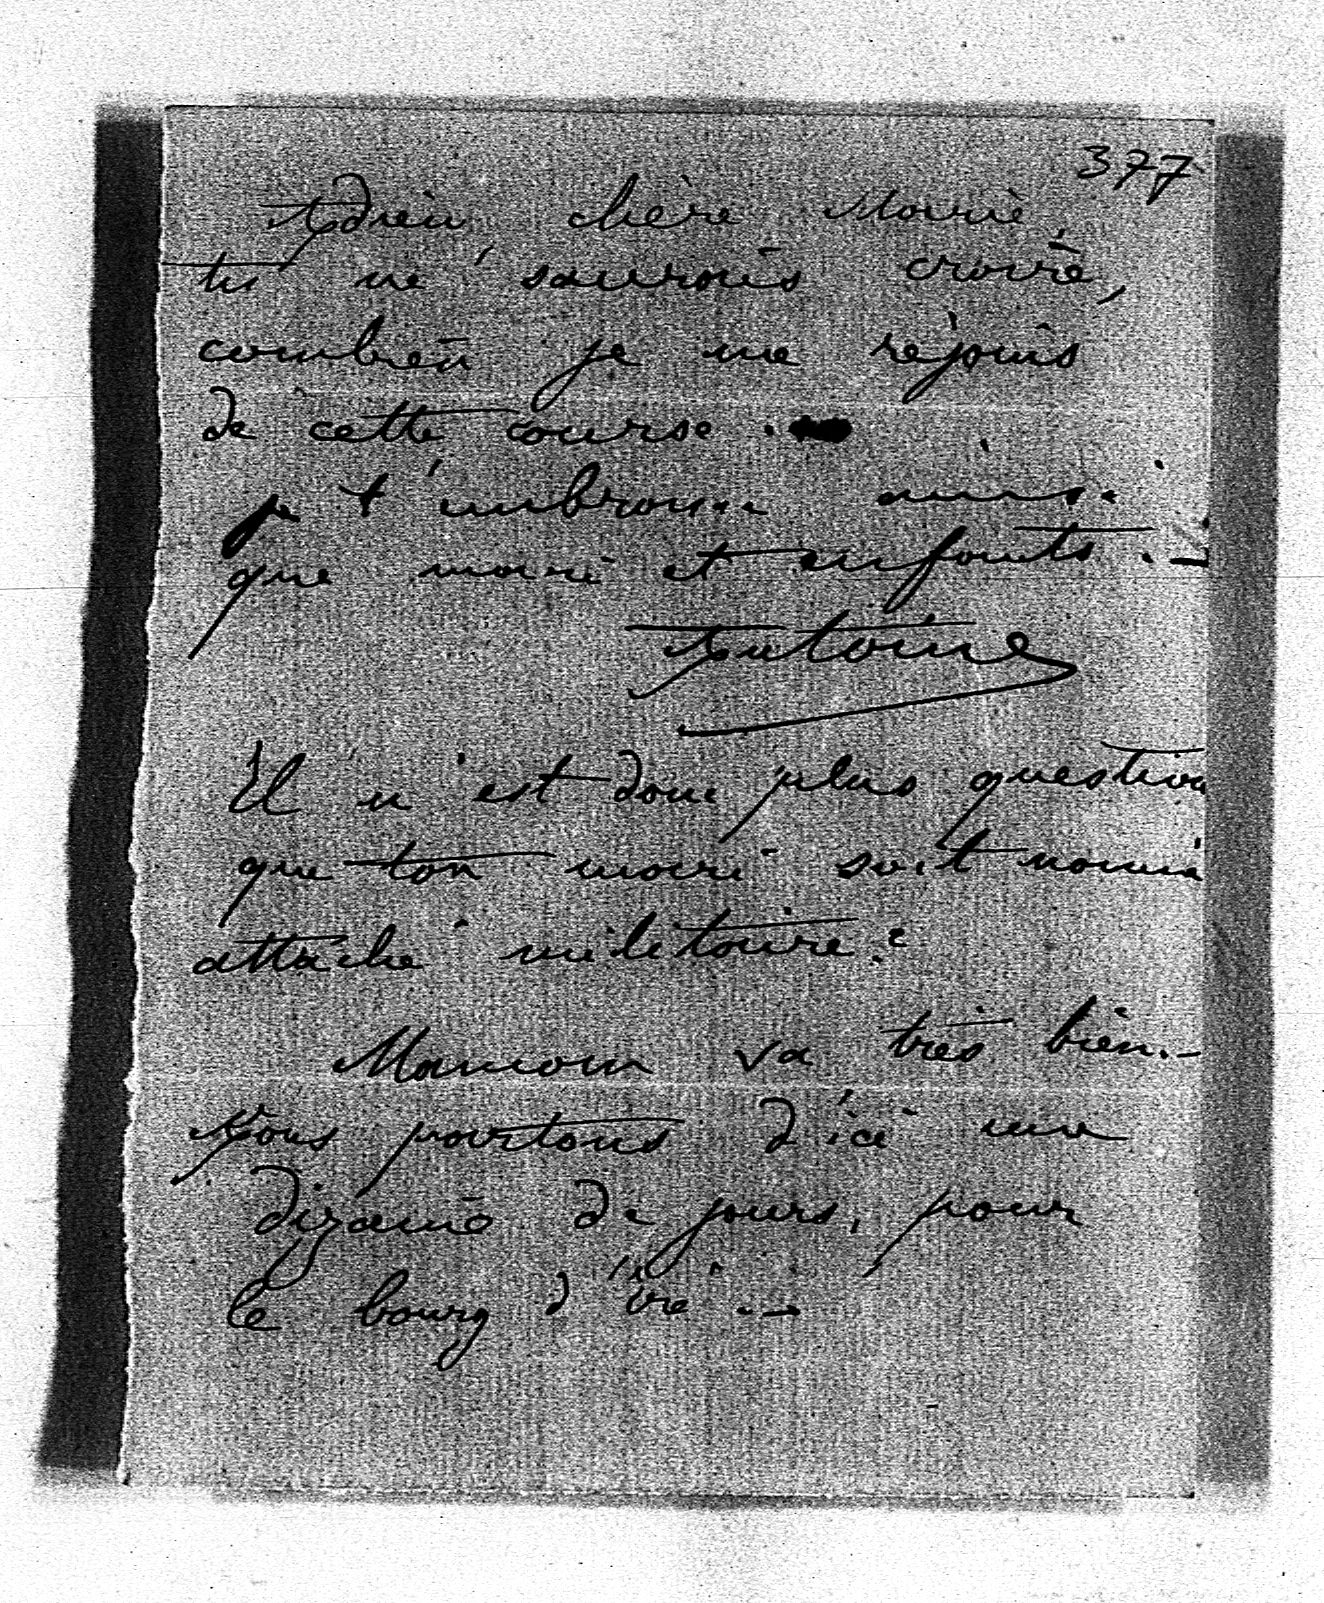 377
Adieu, chère Marie,
tu ne saurais croire,
combien je me réjouis
de cette course.
je t'embrasse ainsi
que mari et enfants. –
Antoine
Il n'est donc plus question
que ton mari soit nommé
attaché militaire?
Maman va très bien. –
Nous partons d'ici une
dizaine de jours, pour
le bourg d'Iré. –